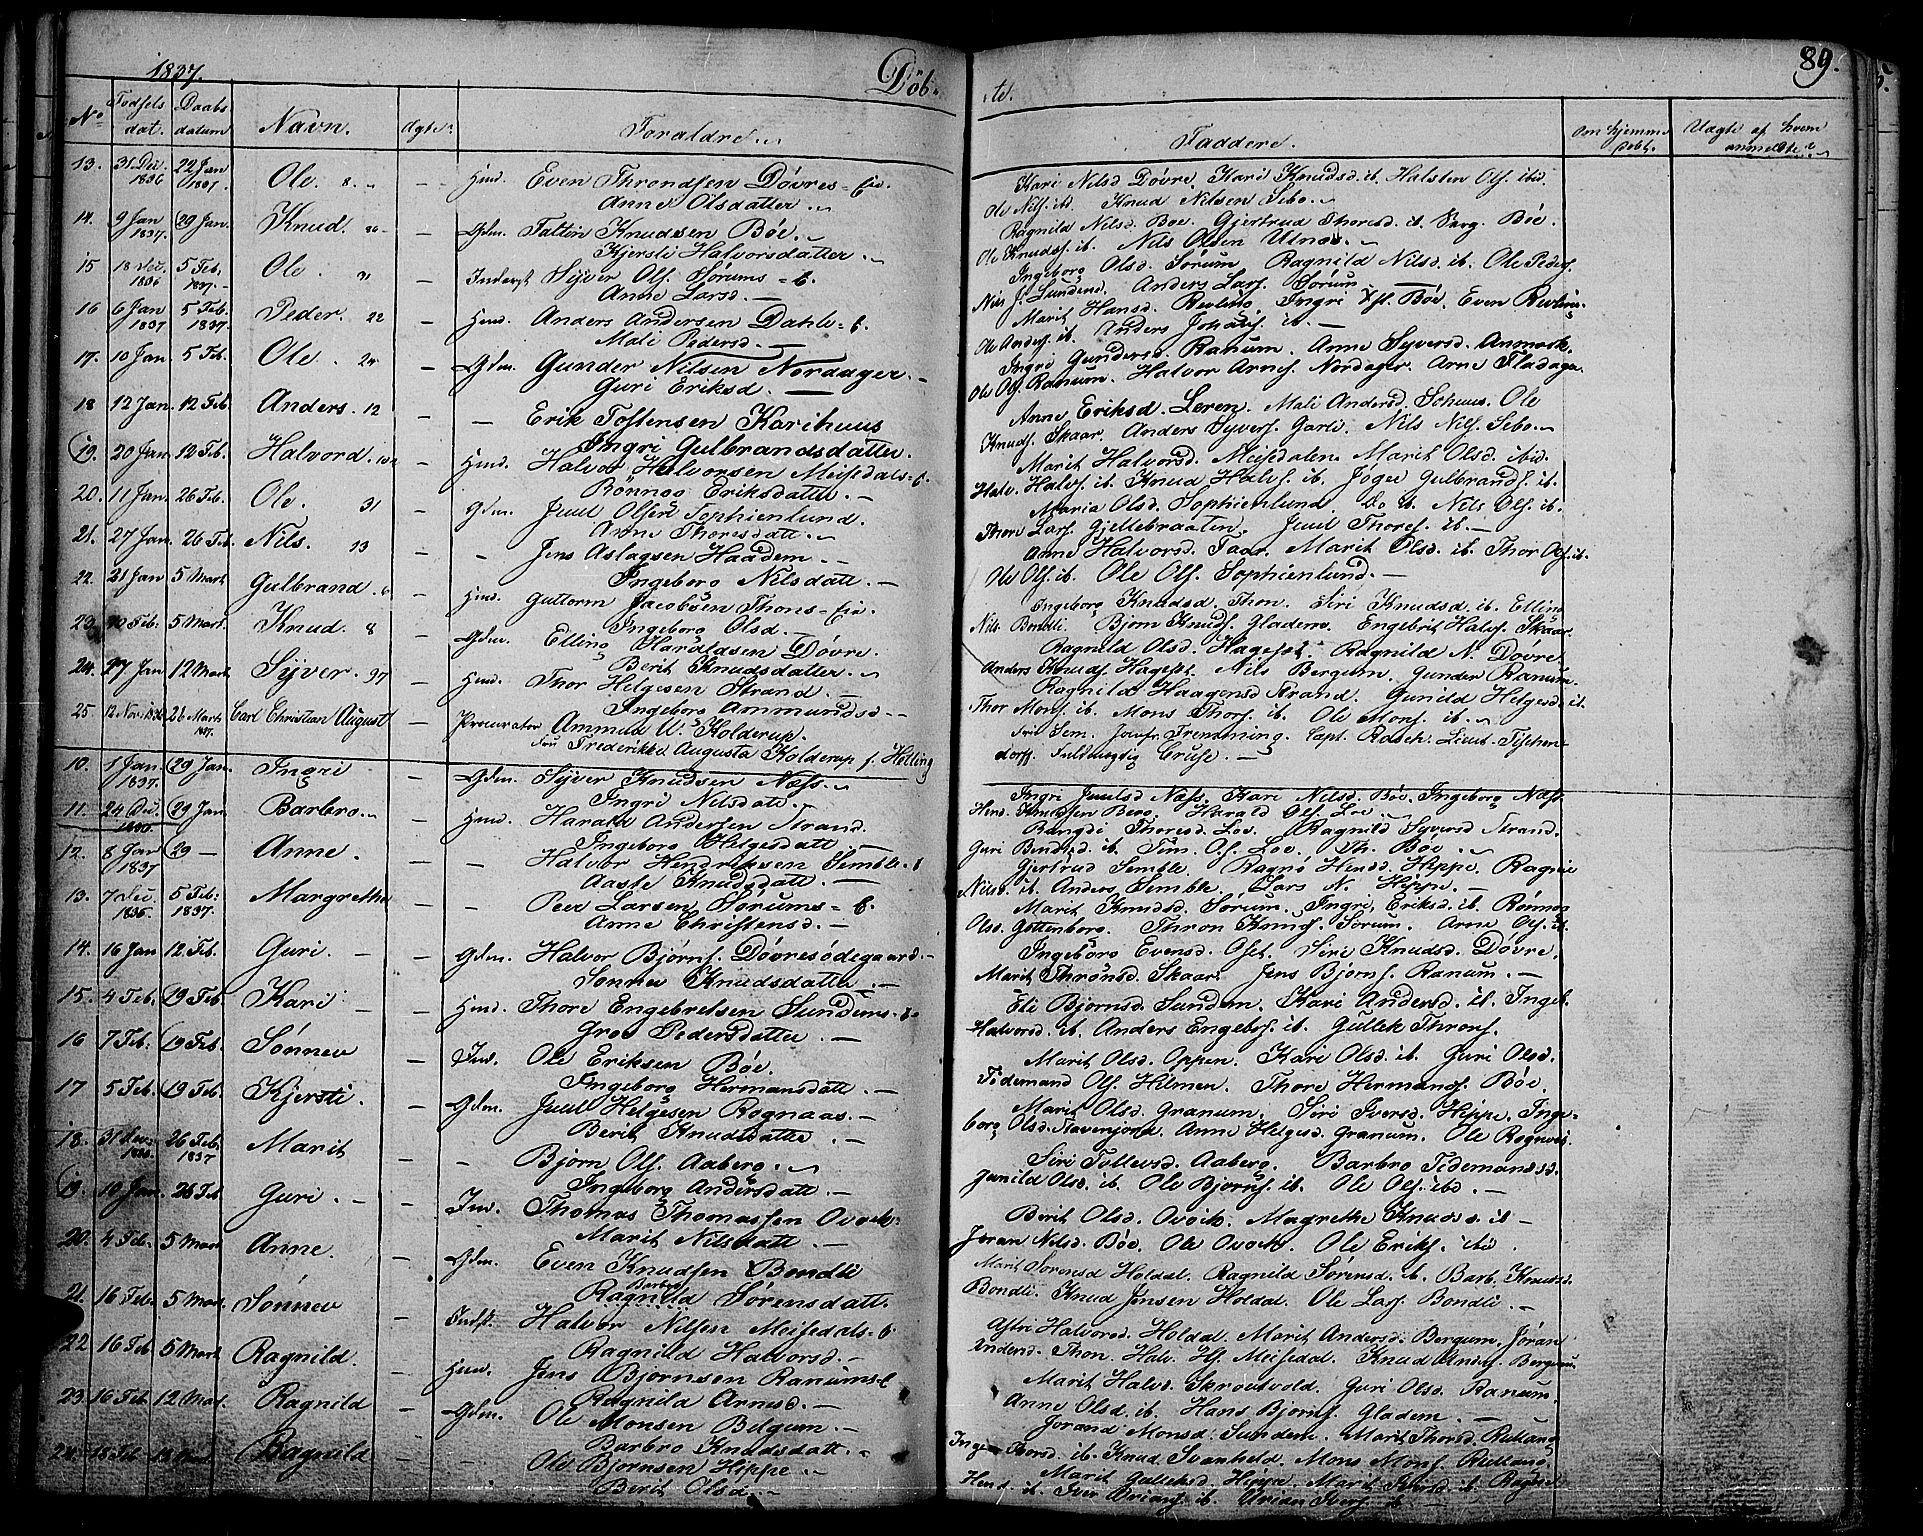 1837.
Döb-
te.
89.
No
Fødsels dat.
Daabs datum
Navn.
Ægte.
Forældre.
Faddere.
Om hjemme døbt.
Uægte af hvem anmeldte
13. 31 Dec 1836 22 Jan 1837. Ole. 8. — Hmd. Even Throndsen Døvres=Eie.
Anne Olsdatter.
Kari Nilsd Døvre. Kari Knudsd. ib. Halsten Ols. ibid.
Ole Nils. ibd. Knud Nilsen Sebo.
14. 9 Jan 1837. 29 Jan. Knud. — Gdm. Knudsen Böe.
Kjersti Halvorsdatter.
Ragnild Nilsd. Boe. Gjertrud Thoresd. Böe.
Ole Knuds. ib. Nils Olsen Ulnæs.
15 18 Dec 1836 5 Feb. 1837. Ole — Inderst Syver Ols. Sörums=E.
Anne Larsd. —
Ingeborg Olsd. Sörum. Ragnild Nilsd. ib. Ole Peders.
Nils J. Sundend. Anders Lars. Sörum —
16 6 Jan 1837 5 Feb. 1837. Peder. 22 — Hmd. Anders Andersen Dahle=E.
Mali Pedersd. —
Marit Hansd. Revling. Ingri Böe. Even Revling
Ole Anders. ib. Anders Johans. ib. —
17. 10 Jan. 5 Feb. Ole. 24 — Gdm. Gunder Nilsen Nordager. —
Guri Eriksd. —
Ingri Gundersd. Ranum. Anne Syversd.
Ole Ols. Ranum. Halvor Arnes. Nordager. Arne Fladager
18 12 Jan. 12 Feb. Anders. 12 — — Erik Tostensen Karihuus
Ingri Gulbrandsdatter.
Anne Eriksd. Leren. Mali Andersd. Ole
Knuds. Skaar. Anders Syvers. Garli. Nils Nils. Sebo.
19. 20 Jan 12 Feb. Halvord. — Hmd. Halvor Halvorsen Misfdals=E.
Rönnog Eriksdatter. —
Marit Halvorsd. Misfdalen. Marit Olsd. ibid.
Halv. Halvs. ib. Knud Halvs. ib. Jöger Gulbrands. ib.
20. 11 Jan 26 Feb. Ole. 31 — Gdm. Juul Olsen Sophienlund.
Anne Thoresdatt.
Maria Olsd. Sophienlund. Do. ib. Nils Ols. ib.
Thore Lars. Gjellebraaten. Juul Thores. ib. —
21. 27 Jan 26 Feb. Nils. 13 — — Jens Aslagsen Haadem —
Ingeborg Nilsdatt. —
Anne Halvorsd. Faar. Marit Olsd. ib. Thor Ols. ib.
Ole Ols. ib. Ole Ols. Sophienlund. —
22. 21 Jan 5 Mart Gulbrand. 6 — Hmd. Guttorm Jacobsen Thons=Eie.
Ingeborg Olsd. —
Ingeborg Knudsd. Thon. Siri Knudsd. ib. Elling
Nils. Bondli Bjørn Knuds. Gladem. Engebrit Halvs. Skaar.
23. Feb. 5 Mart. Knud. 8 — Gdm. Elling Haraldsen Døvre.
Berit Knudsdatter. —
Ragnild Olsd. Hagest. Ragnild N. Døvre.
Anders Knuds. Hagest. Nils Bergum. Gunder Ranum.
24. 27 Jan 12 Mart Syver. 97 — Hmd. Thor Helgesen Strand. —
Ingeborg Ammundsd —
Ragnild Haagensd Strand. Gunild Helgesd. ib.
Thor Mons. ib. Mons Thors. ib. Ole Mons. ib.
25 12 Nov 1836 26 Marts 1837. Carl Christian August — Procurator Ammund U. Kolderup.
Fru Frederikke Augusta Kolderup f. Helling
Fru Sem. Jomfr. Fremming. Capt. Rasch. Lieut. Tischen-
dorff. Fuldmægtig Cruse. —
10. 1 Jan. 1837. 29 Jan. Ingri — Gdm. Syver Knudsen Næss.
Ingri Nilsdatt. —
Ingri Juulsd Næss. Kari Nilsd. Böe. Ingeborg Næss.
Hend. Knudsen Berg. Harald Ols. Loe.
11. 24 Dec. 29 Jan. Barbro. — Hmd. Harald Andersen Strand.
Ingeborg Helgesdatt. —
Bangdi Thoresd. Loe. Ragnild Syversd Strand.
Guri Bendsd. ib. Tim. Ols. Loe. Th. Böe.
12. 8 Jan 1837 29 — Anne. — — Halvor Hendriksen Semble=E
Aaste Knudsdatt. —
Gjertrud Semble. Ragnö Hendsd. Hippe. Ragnil
Nilsd. ib. Anders Semble. Lars N. Hippe. —
13. 7 Dec 1836. 5 Feb: 1837. Margrethe — — Peer Larsen Sorums=E.
Anne Christensd. —
Marit Knudsd. Sorum. Ingri Eriksd. ib. Rönnog
Olsd. Gottenborg. Thron Knuds. Sorum. Arne Ols. ib.
14. 16 Jan 12 Feb. Guri. — Gdm. Halvor Bjørns. Døvresødegaard —
Sönnev Knudsdatter. —
Ingeborg Evensd. Oset. Siri Knudsd. Døvre.
Marit Thronsd. Skaar. Jens Bjorns. Ranum. —
15. 4 Feb. 19 Feb Kari — Hmd. Thore Engebretsen Sundems=E.
Gro Pedersdatter. —
Eli Bjornsd. Sundem. Kari Andersd. ib. Ingeb.
Halvorsd. ib. Anders Engebs. ib. Gullek Throns.
16 7 Feb. 19 Feb. Sönnev — Ind. Ole Eriksen Böe.
Ingeborg Hermansdatt. —
Marit Olsd. Oppen. Kari Olsd. ib. Guri Olsd.
Tidemand Ols. Hilmen. Thore Hermands. Böe.
17 5 Feb. 19 Feb. Kjersti. — Gdm. Juul Helgesen Rognaas. —
Berit Knudsdatter. —
Marit Olsd. Granum. Siri Iversd. Hippe. Inge-
borg Olsd. Anne Helgesd. Granum. Ole Rognaas.
18. 31 Dec 1836. 26 Feb. 1837 Marit — — Björn Ols. Aaberg.
Ingeborg Andersdatt. —
Siri Tollevsd. Aaberg. Barbro Tidemandsd.
Gunild Olsd. ib. Ole Bjorns. ib. Ole Ols. ibd. —
19. 10 Jan. 26 Feb Guri. — Ind. Thomas Thomassen Ovock.
Marit Nilsdatt. —
Berit Olsd. Ovock. Magrethe Knudsd. ib —
Joran Nilsd. Böe. Ole Ovock. Ole Eriks. ibid.
20. 4 Feb. 5 Mart Anne. — Gdm. Even Knudsen Bondli
Barbro
Ragnild Sorensdatt.
Marit Sorensd Holdal. Ragnild Sörensd. ib. Barb. Knudsd.
Bondli. Knud Jensen Holdal. Ole Lars. Bondli. —
21. 16 Feb. 5 Mart. Sönnev — Indst. Halvor Nilsen Misfdals=E.
Ragnild Halvorsd. —
Astri Halvorsd. Holdal. Marit Andersd. Bergum. Jöran
Andersd. Thon. Halv. Hs. Misfdal. Knud Anders. Bergum.
22 16 Feb 5 Mart Ragnild. — Hmd. Jens Bjornsen Ranums=E
Ragnild Arnesd. —
Marit Halvs. Skroutvold. Guri Olsd. Ranum.
Anne Olsd. ib. Hans Bjorns. Gladem. —
23. 16 Feb 12 Mart. Ragnild — Gdm. Ole Monsen Belgum. —
Barbro Knudsdatt. —
Jorand Monsd. Sundem. Marit Thorsd. Rutlang
Thorsd. ib. Knud Svanheld. Mons Mons. Rutlang
24. 18 Feb Mart Ragnild — — Ole Bjornsen Hippe.
Berit Olsd. —
Marit Gulleksd. Hippe. Marit Iversd. ib. Ragnil
Hend. ib. Iver Orians. ib. Urian Ivers. ib